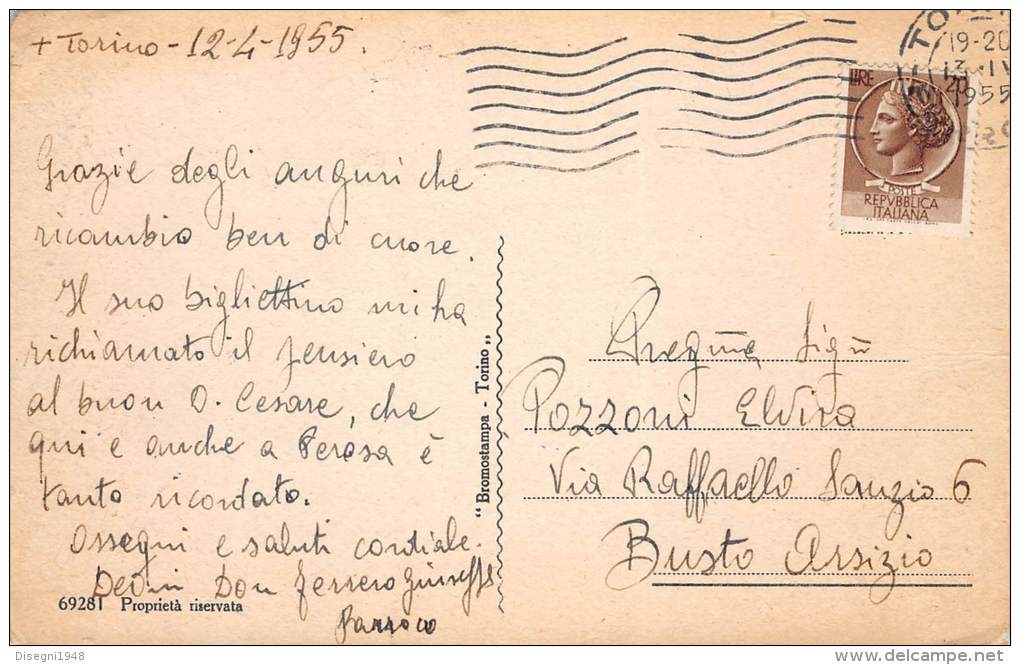 + Torino - 12-4-1955.
Grazie degli auguri che
ricambio ben di cuore.
Il suo bigliettino mi ha
richiamato il pensiero
al buon D. Cesare, che
qui e anche a Perosa è
tanto ricordato.
Ossequi e saluti cordiale.
Dev.mi Don Ferrero Giuseppe
Parroco
69281 Proprietà riservata
"Bromostampa - Torino"
TORIN
19-20
13-IV
1955
LIRE 20
POSTE
REPVBBLICA
ITALIANA
Preg.me Sig.
Pozzoni Elvira
Via Raffaello Sanzio 6
Busto Arsizio
Disegni1948
delcampe.net